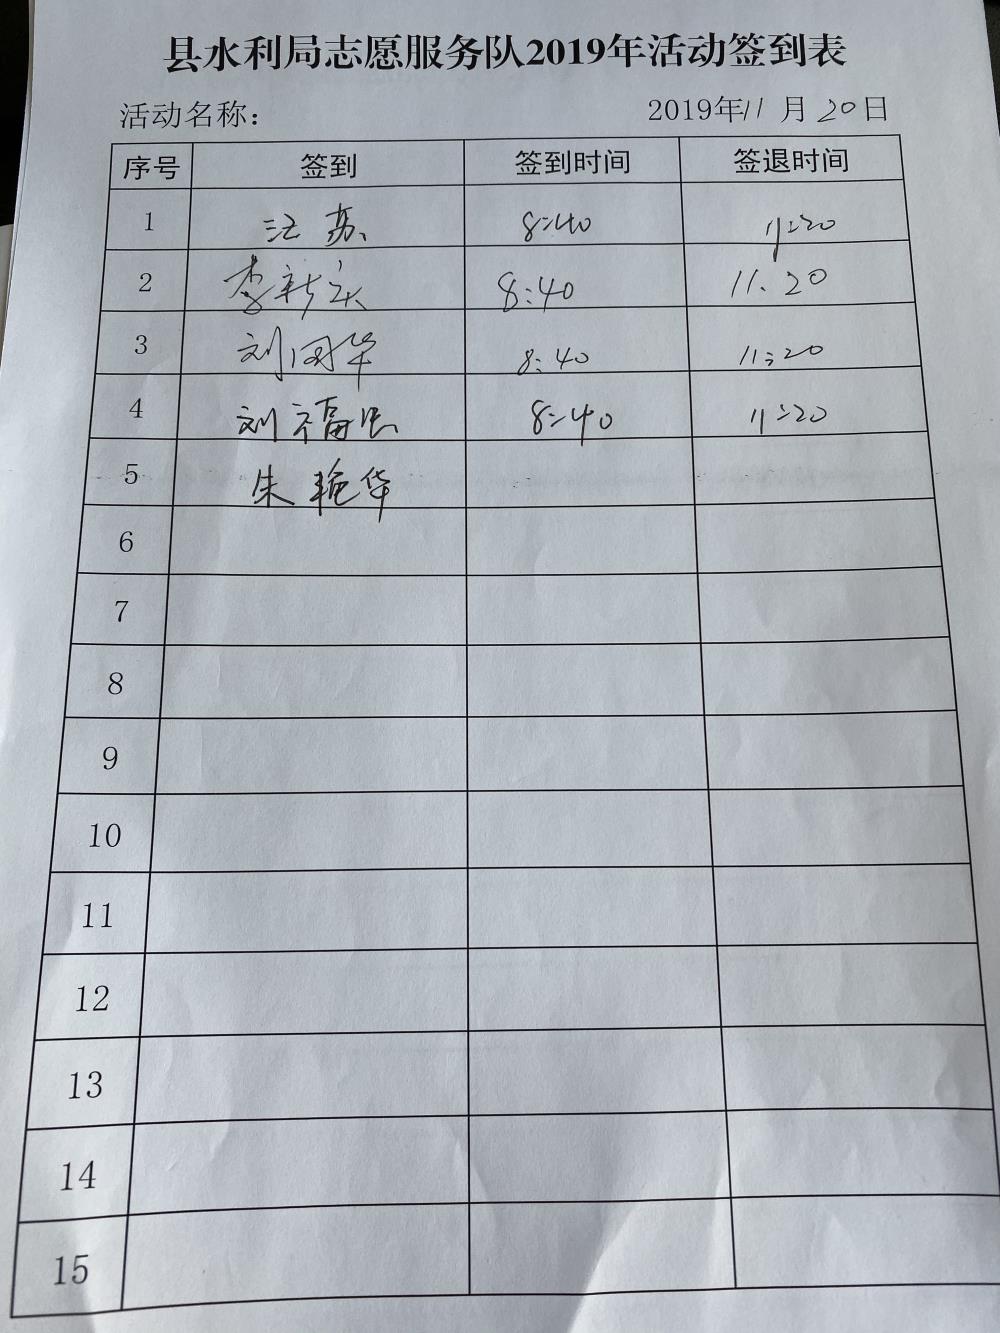 县水利局志愿服务队2019年活动签到表
活动名称： 2019年11月20日
序号 签到 签到时间 签退时间
1 江苏 8:40 11:20
2 李新 8:40 11.20
3 刘国华 8:40 11:20
4 刘福忠 8:40 11:20
5 朱艳华
6
7
8
9
10
11
12
13
14
15